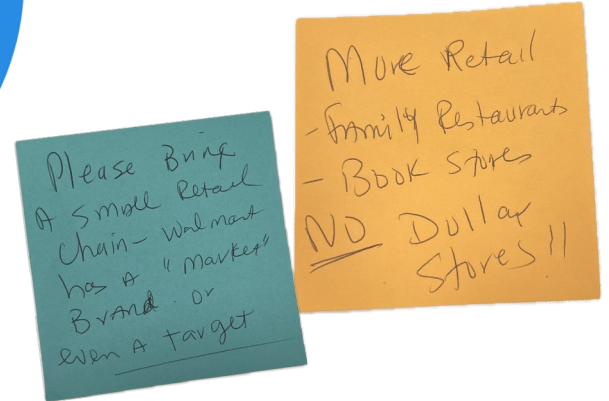 Please Bring
A small Retail
Chain - Walmart
has A "Market"
Brand. or
even A target
More Retail
- Family Restaurants
- Book Stores
NO Dollar
Stores!!